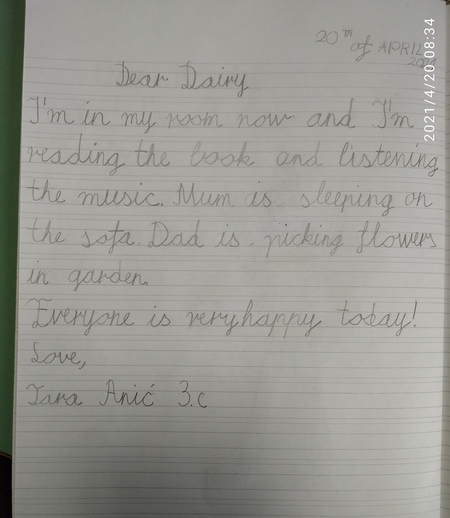 20th of APRIL
Dear Dairy
I'm in my room now and I'm
reading the book and listening
the music. Mum is sleeping on
the sofa. Dad is picking flowers
in garden.
Everyone is very happy today!
Love,
Tara Anić 3.c
2021/4/20 08:34